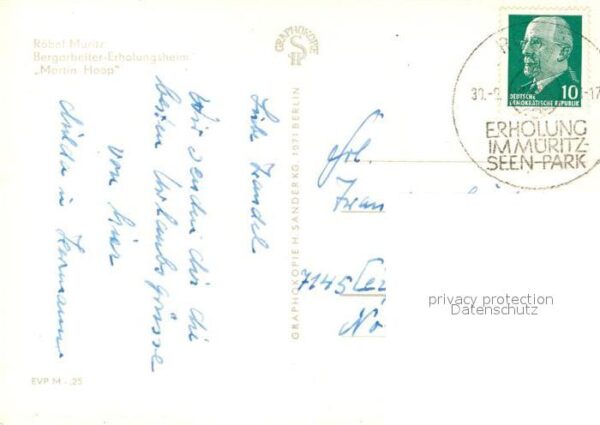 Röbel-Müritz
Bergarbeiter-Erholungsheim
„Martin Hoop“
GRAPHOKOPIE
HS
GRAPHOKOPIE H. SANDER KG. 1071 BERLIN
EVP M -,25
10
DEUTSCHE
DEMOKRATISCHE REPUBLIK
30.-9.
-17
ERHOLUNG
IM MÜRITZ-
SEEN-PARK
Liebe
Wir senden dir die
besten Urlaubsgrüsse
von hier
Hilda u Hermann
Frl.
7145
privacy protection
Datenschutz